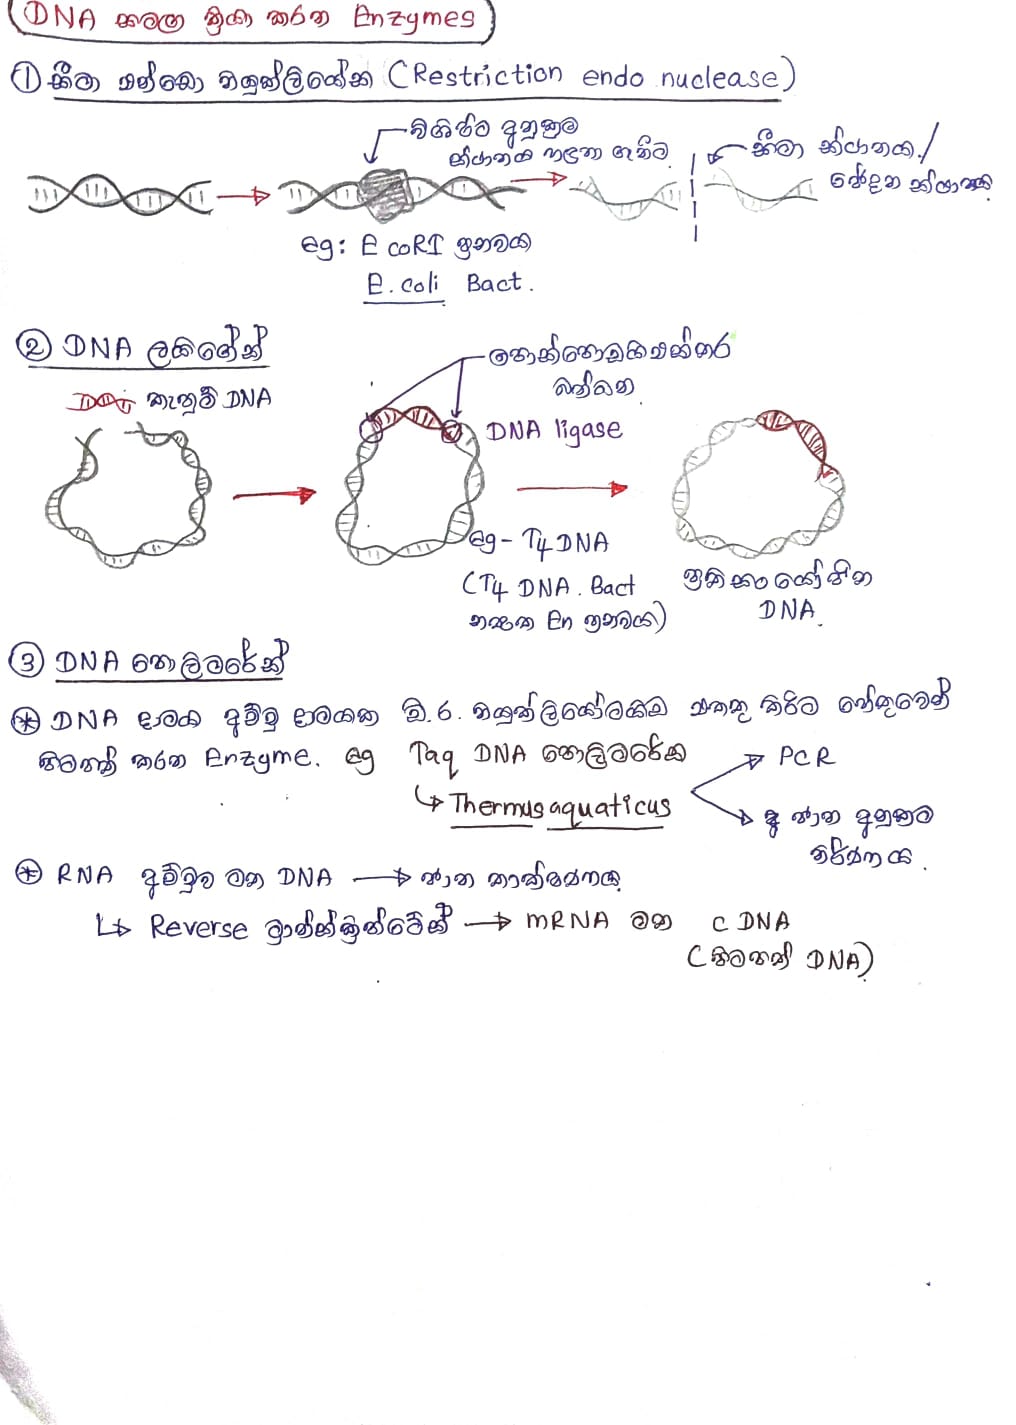 DNA සමඟ ක්‍රියා කරන Enzymes
① සීමා එන්ඩො නියුක්ලියේස (Restriction endo nuclease)
විශිෂ්ට අනුක්‍රම
ස්ථානය හඳුනා ගැනීම
සීමා ස්ථානය /
ඡේදන ස්ථානය
eg: E coRI ප්‍රභවය
E. coli Bact.
② DNA ලයිගේස්
කැනුම් DNA
පොස්පොඩයිඑස්ටර
බන්ධන
DNA ligase
eg - T4 DNA
(T4 DNA. Bact
භක්ෂක En ප්‍රභවය)
ප්‍රතිසංයෝජිත
DNA
③ DNA පොලිමරේස්
* DNA දාමය අච්චු දාමයක ඩී. ඔ. නියුක්ලියෝටයිඩ එකතු කිරීම හේතුවෙන්
පිටපත් කරන Enzyme. eg Taq DNA පොලිමරේස
↳ Thermus aquaticus
PCR
ජාන අනුක්‍රම
නිර්ණය.
* RNA අච්චුව මත DNA → ජාන
↳ Reverse ට්‍රාන්ස්ක්‍රිප්ටේස් → mRNA මත c DNA
(පිටපත් DNA)